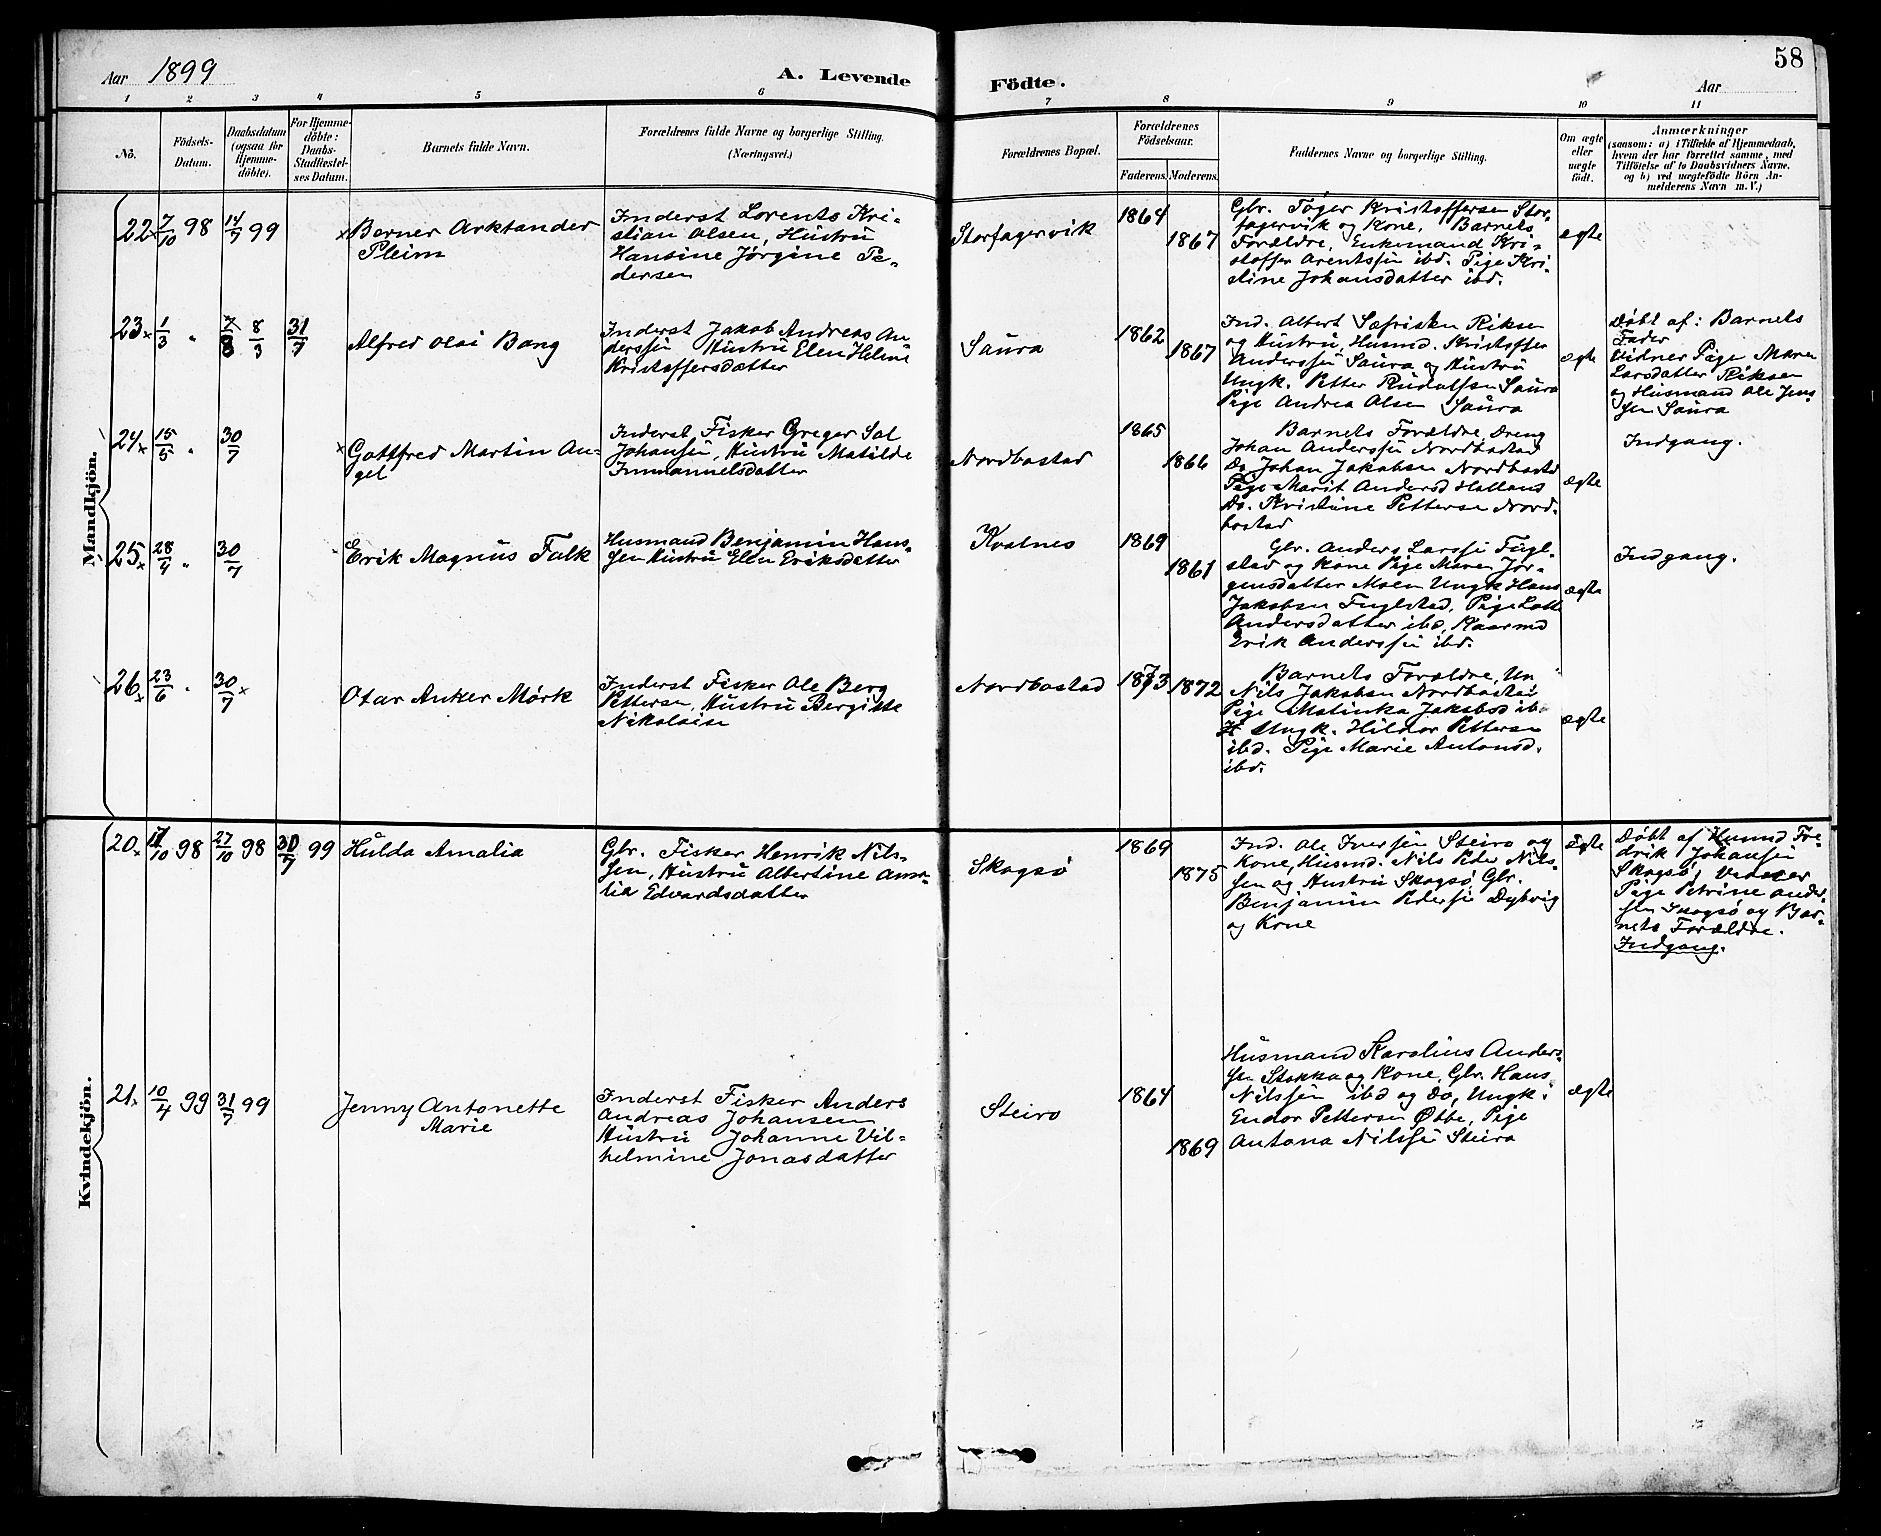 58
Aar 1899
A. Levende
Födte.
Aar
1 2 3 4 5 6 7 8 9 10 11
No.
Födsels-
Datum.
Daabsdatum
(ogsaa for
Hjemme-
döbte).
For Hjemme-
döbte:
Daabs-
Stadfæstel-
ses Datum.
Barnets fulde Navn.
Forældrenes fulde Navne og borgerlige Stilling.
(Næringsvei.)
Forældrenes Bopæl.
Forældrenes
Födselsaar.
Faderens. Moderens.
Faddernes Navne og borgerlige Stilling.
Om ægte
eller
uægte
födt.
Anmærkninger
(saasom: a) i Tilfælde af Hjemmedaab,
hvem der har forrettet samme, med
Tilföielse af to Daabsvidners Navne,
og b) ved uægtefödte Börn An-
melderens Navn m. V.)
Mandkjön.
22 7/10 98 14/7 99
Berner Arktander
Pleim
Inderst Lorents Kri-
stian Olsen, Hustru
Hansine Jørgine Pe-
dersen
Storfagervik
1864
1867
Gbr. Toger Kristoffersen Stor-
fagervik og Kone, Barnets
Forældre, Enkemand Kri-
stoffer Arentssen ibd. Pige Kri-
stine Johansdatter ibd.
ægte
23 1/3 " 8/3 31/7
Alfred Olai Bang
Inderst Jakob Andreas An-
derssen Hustru Elen Helene
Kristoffersdatter
Saura
1862
1867
Ind. Albert Sefrisken Riksen
og Hustru, Husmd. Kristoffer
Anderssen Saura og Hustru
Ungk. Petter Rudolfsen Saura
Pige Andrea Olsen Saura
ægte
Døbt af: Barnets
Fader
Vidner Pige Maren
Larsdatter Riksen
og Husmand Ole Jens-
sen Saura
24 15/5 " 30/7
Gottfred Martin An-
gel
Inderst Fisker Greger Sal
Johansen, Hustru Matilde
Immannelsdatter
Nordbostad
1865
1866
Barnets Forældre, Dreng
Johan Anderssen Nordbostad
Do Johan Jakobsen Nordbostd
Pige Marit Andersd Hollans
Do. Kristine Pettersen Nord-
bostad
ægte
Indgang.
25 28/4 " 30/7
Erik Magnus Falk
Husmand Benjamin Hans-
sen Hustru Elen Eriksdatter
Kvalnes
1869
1861
Gbr. Anders Larssen Fugl-
stad og Kone Pige Maren Jør-
gensdatter Moen Ungk Hans
Jakobsen Fuglstad, Pige Lott
Andersdatter ibd, Kaarmd
Erik Anderssen ibd.
ægte
Indgang.
26 23/6 " 30/7
Otar Anker Mørk
Inderst Fisker Ole Berg
Pettersen, Hustru Bergitte
Nikolaisen
Nordbostad
1873
1872
Barnets Forældre, Un
Nils Jakobsen Nordbostad
Pige Matinka Jakobsd ib.
Ungk. Hildor Pettersen
ibd. Pige Marie Antonsd.
ibd.
ægte
Kvindekjön.
20 17/10 98 27/10 98 30/7 99
Hulda Amalia
Gbr. Fisker Henrik Nils-
sen, Hustru Albertine Ama-
lia Edvardsdatter
Skogsø
1869
1875
Ind. Ole Iversen Steiro og
Kone, Husmd. Nils Peter Nils-
sen og Hustru Skogsø, Gbr.
Benjamin Pedersen Dybvig
og Kone
Ægte
Døbt af Husmd Fre-
drik Johansen
Skogsø, Vidner
Pige Petrine Ander-
sen Skogsø og Bar-
nets Forældre.
Indgang.
21 10/4 99 31/7 99
Jenny Antonette
Marie
Inderst Fisker Anders
Andreas Johansen
Hustru Johanne Vil-
helmine Jonasdatter
Steiro
1864
1869
Husmand Karolius Anders-
sen Stokka og Kone, Gbr. Hans
Nilssen ibd og Do, Ungk.
Endor Pettersen Øbbe, Pige
Antona Nilssen Steira
ægte